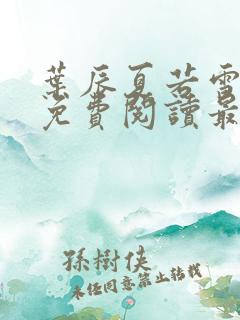 葉辰夏若雪
免費閱讀最
孫樹俠
未經同意禁止轉載